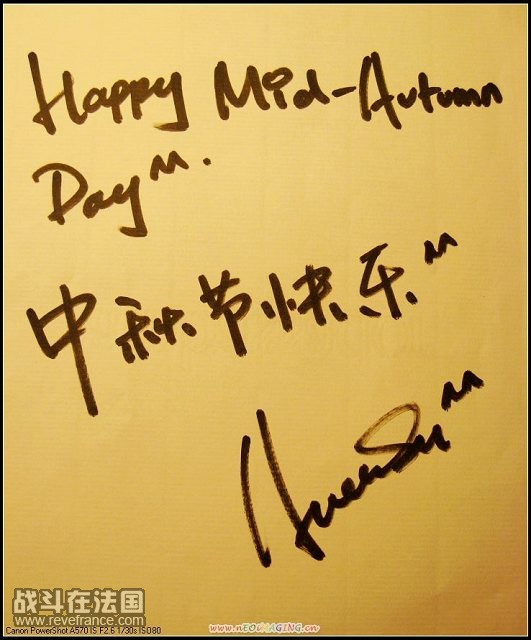 Happy Mid-Autumn
Day^^.
中秋节快乐^^
战斗在法国
www.revefrance.com
Canon PowerShot A570 IS F2.6 1/30s ISO80
www.nEOiMAGING.cn